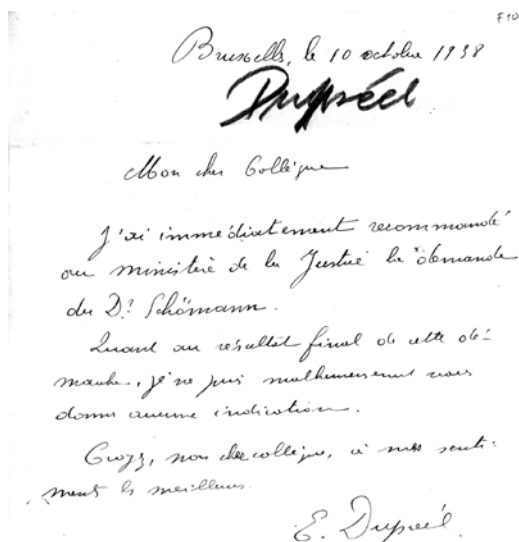 F10
Bruxelles, le 10 octobre 1938
Dupréel
Mon cher Collègue
J'ai immédiatement recommandé
au ministère de la Justice la demande
du Dr Schömann.
Quant au résultat final de cette dé-
marche, je ne puis malheureusement vous
donner aucune indication.
Croyez, mon cher collègue, à mes senti-
ments les meilleurs.
E. Dupréel.